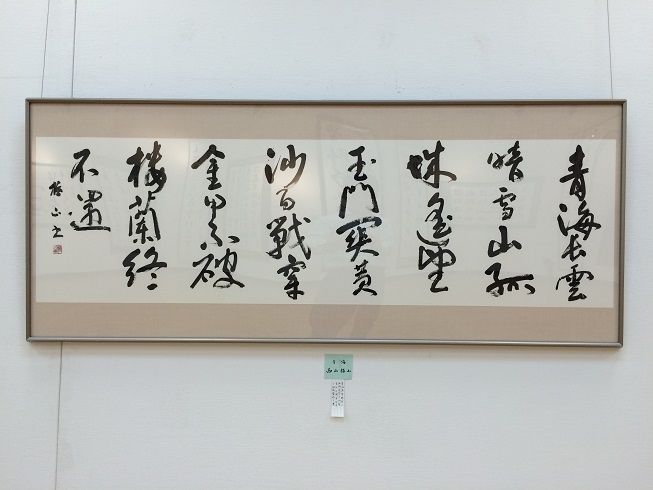 青海長雲
暗雪山孤
城遙望
玉門関黄
沙百戰穿
金甲不破
樓蘭終
不還